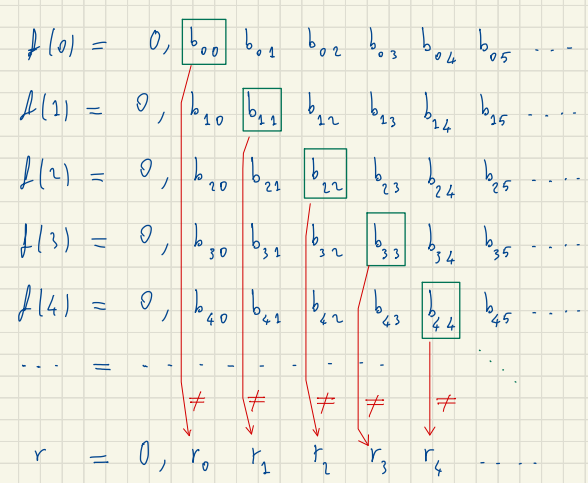 f(0) = 0, b₀₀ b₀₁ b₀₂ b₀₃ b₀₄ b₀₅ ....
f(1) = 0, b₁₀ b₁₁ b₁₂ b₁₃ b₁₄ b₁₅ ....
f(2) = 0, b₂₀ b₂₁ b₂₂ b₂₃ b₂₄ b₂₅ ....
f(3) = 0, b₃₀ b₃₁ b₃₂ b₃₃ b₃₄ b₃₅ ....
f(4) = 0, b₄₀ b₄₁ b₄₂ b₄₃ b₄₄ b₄₅ ....
... = - - - - - - - - - ⋱
≠ ≠ ≠ ≠ ≠
r = 0, r₀ r₁ r₂ r₃ r₄ ....